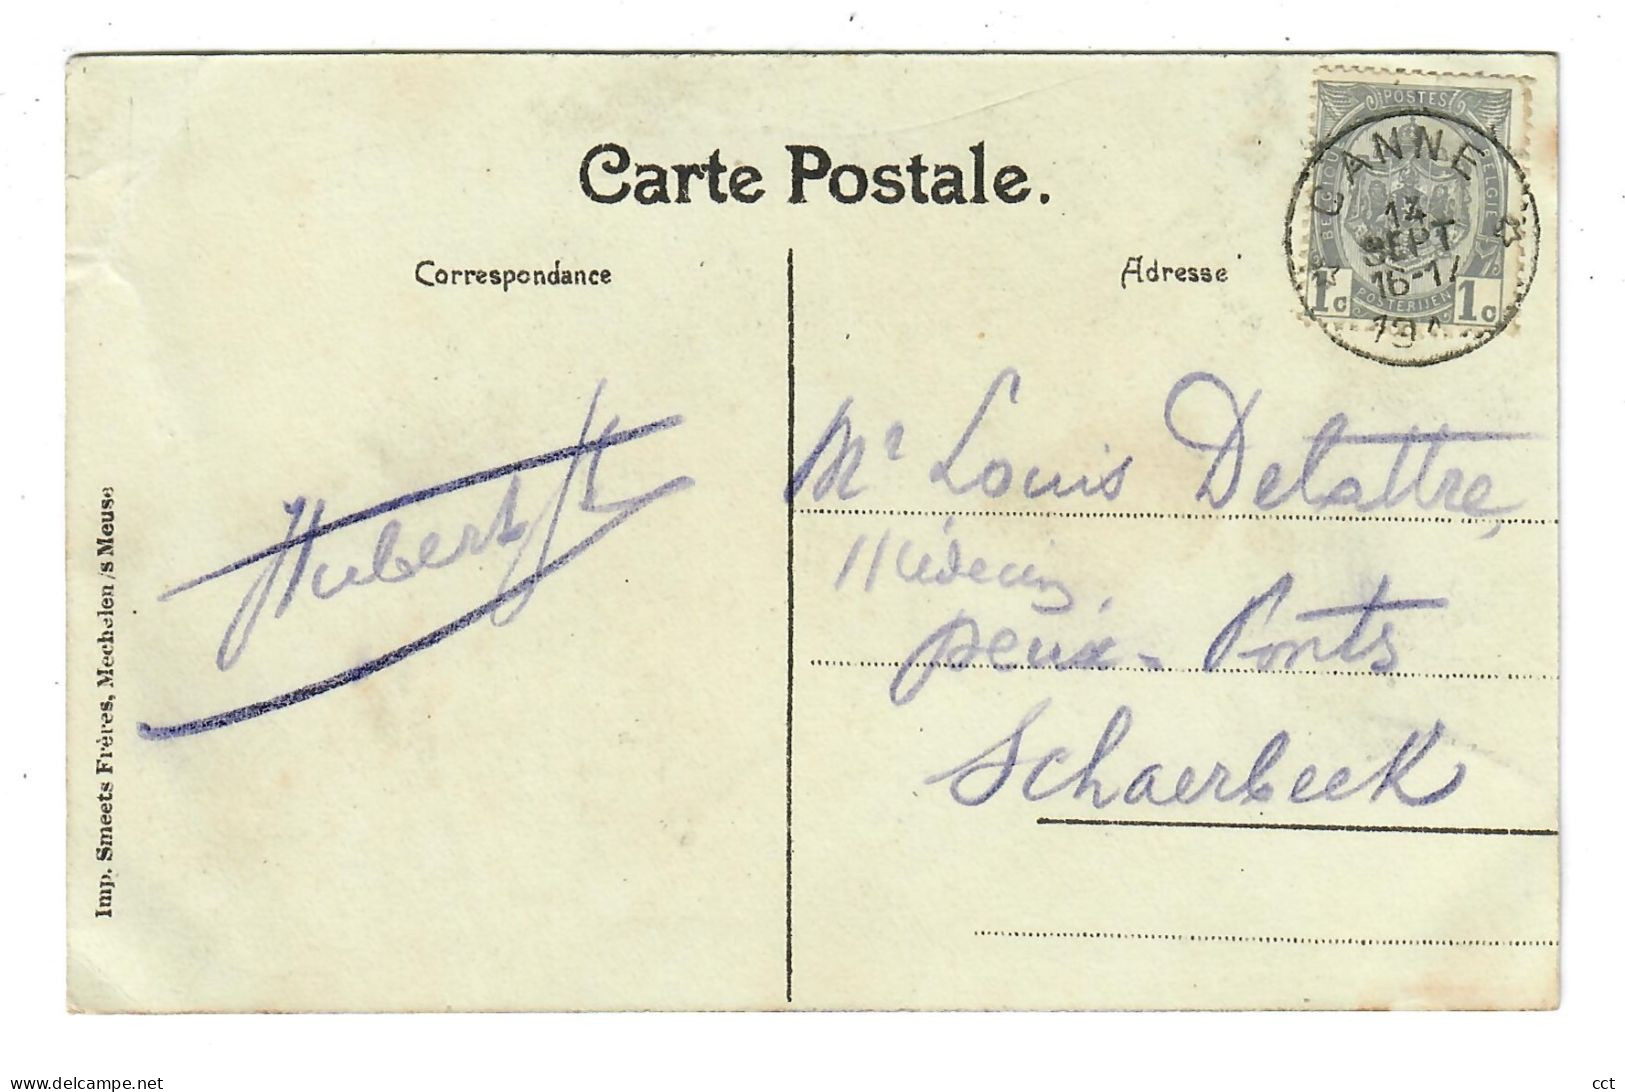 Carte Postale.
Correspondance
Adresse
POSTES
BELGIQUE
BELGIE
POSTERIJEN
1c
1c
CANNE
14
SEPT
16-17
191
Hubert
Mr Louis Delattre,
Médecin
Deux-Ponts
Schaerbeek
Imp. Smeets Frères, Mechelen /s Meuse
delcampe.net
cct